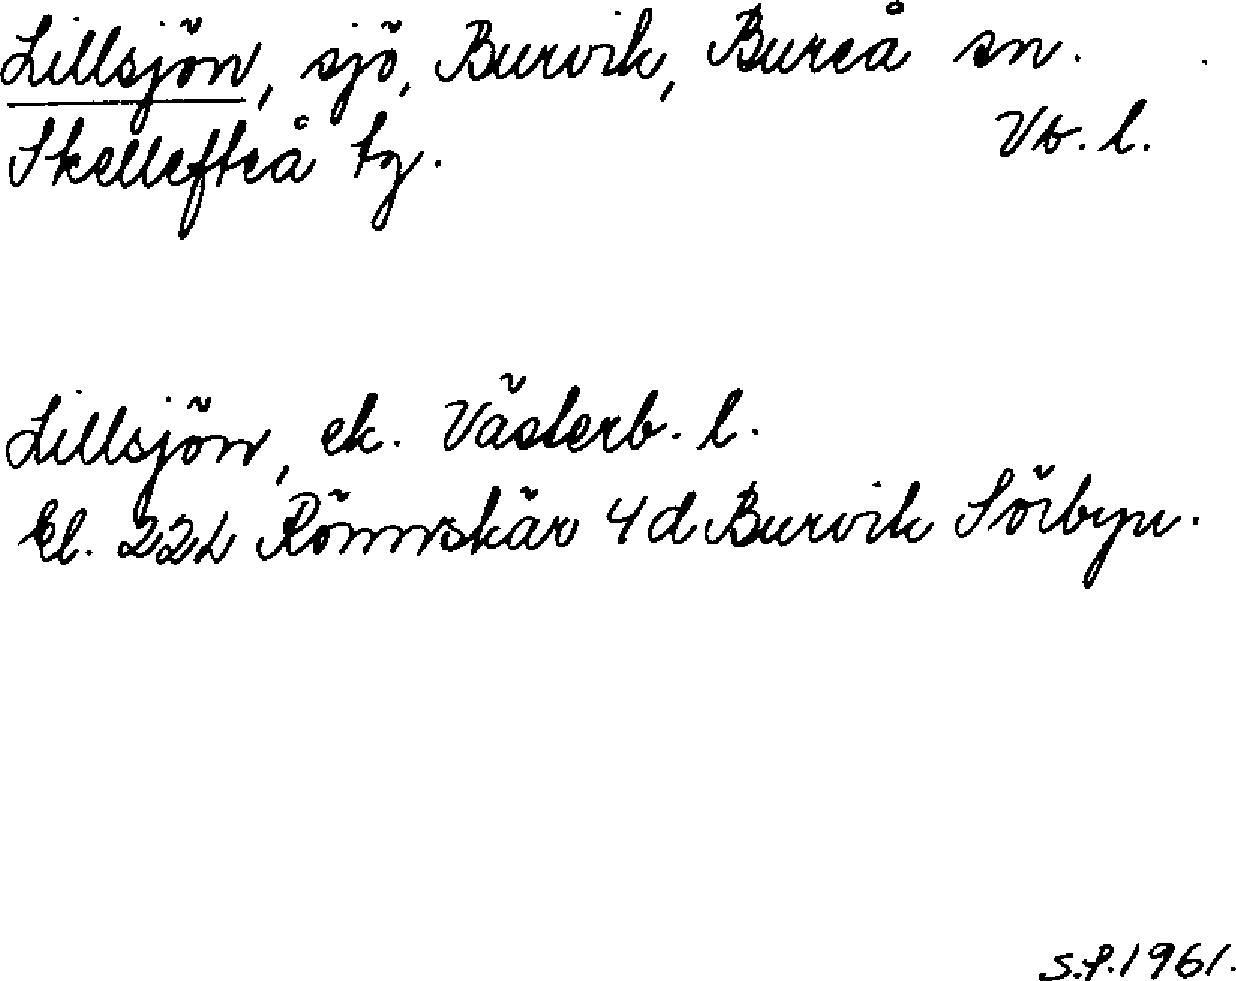 Lillsjön, sjö, Burvik, Bureå sn.
Skellefteå tg. Vb. l.
Lillsjön, ek. Västerb. l.
Bl. 22L Rönnskär 4d Burvik Sörbyn.
S.P. 1961.